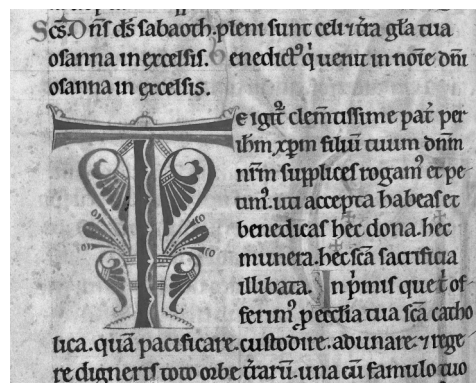 Scs. Dñs ds̄ sabaoth. pleni sunt celi ⁊ t̄ra gl̄a tua
osanna in excelsis. Benedict⁹ q̇ uenit in noīe dñi
osanna in excelsis.
Te igit᷑ clem̄tissime pat̄ per
ih̄m xp̄m filiū tuum dn̄m
nr̄m supplices rogam⁹ et pe-
tim⁹. uti accepta habeas et
benedicas hec dona. hec
munera. hec sc̄a sacrificia
illibata. In ṗmis que t̄ of-
ferim⁹ ꝓ ecclia tua sc̄a catho
lica. quā pacificare. custodire. adunare. ⁊ rege
re digneris toto orbe t̄rarū. una cū famulo tuo